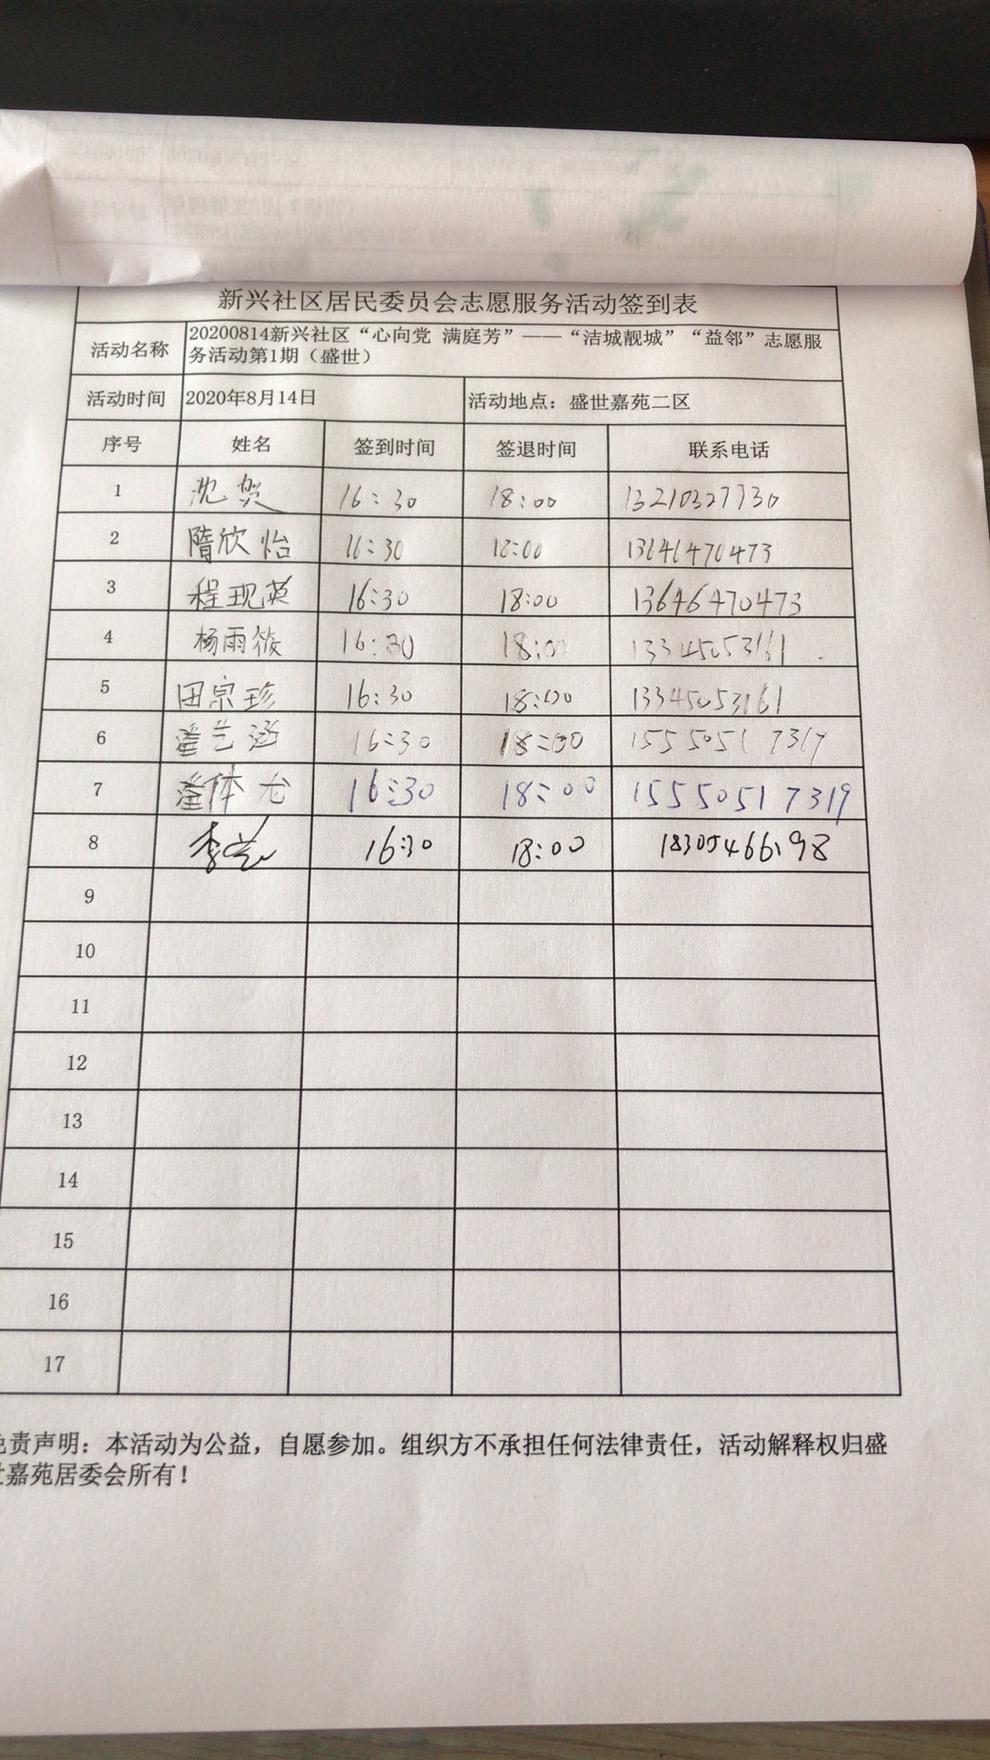 新兴社区居民委员会志愿服务活动签到表
活动名称 20200814新兴社区“心向党 满庭芳”——“洁城靓城”“益邻”志愿服
务活动第1期（盛世）
活动时间 2020年8月14日 活动地点：盛世嘉苑二区
序号 姓名 签到时间 签退时间 联系电话
1 沈 16:30 18:00 13210327730
2 隋欣怡 16:30 18:00 13646470473
3 程现英 16:30 18:00 13646470473
4 杨雨筱 16:30 18:00 13345053161
5 田宗珍 16:30 18:00 13345053161
6 艺涵 16:30 18:00 15550517319
7 体龙 16:30 18:00 15550517319
8 李 16:30 18:00 18305466198
9
10
11
12
13
14
15
16
17
责声明：本活动为公益，自愿参加。组织方不承担任何法律责任，活动解释权归盛
嘉苑居委会所有！